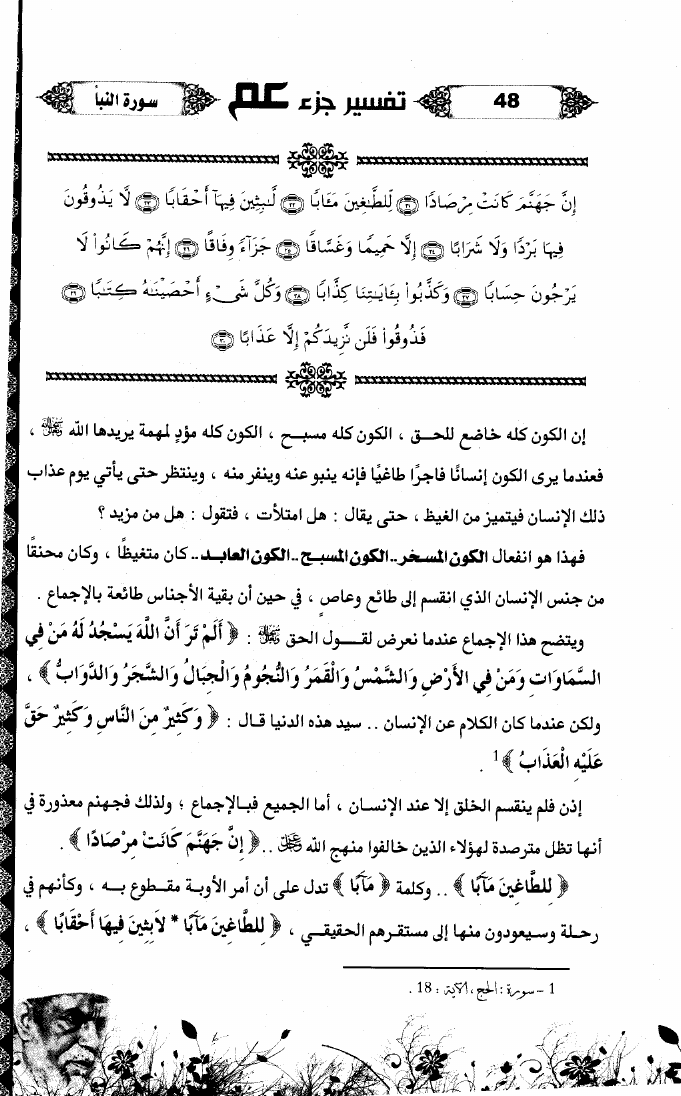 48 تفسير جزء عم سورة النبأ
إِنَّ جَهَنَّمَ كَانَتْ مِرْصَادًا ٢١ لِّلطَّٰغِينَ مَـَٔابًا ٢٢ لَّٰبِثِينَ فِيهَآ أَحْقَابًا ٢٣ لَّا يَذُوقُونَ
فِيهَا بَرْدًا وَلَا شَرَابًا ٢٤ إِلَّا حَمِيمًا وَغَسَّاقًا ٢٥ جَزَآءً وِفَاقًا ٢٦ إِنَّهُمْ كَانُوا۟ لَا
يَرْجُونَ حِسَابًا ٢٧ وَكَذَّبُوا۟ بِـَٔايَٰتِنَا كِذَّابًا ٢٨ وَكُلَّ شَىْءٍ أَحْصَيْنَٰهُ كِتَٰبًا ٢٩
فَذُوقُوا۟ فَلَن نَّزِيدَكُمْ إِلَّا عَذَابًا ٣٠
إن الكون كله خاضع للحـق ، الكون كله مسبـح ، الكون كله مؤدٍ لمهمة يريدها الله ﷻ ،
فعندما يرى الكون إنسانًا فاجرًا طاغيًا فإنه ينبو عنه وينفر منه ، وينتظر حتى يأتي يوم عذاب
ذلك الإنسان فيتميز من الغيظ ، حتى يقال : هل امتلأت ، فتقول : هل من مزيد ؟
فهذا هو انفعال الكون المسخر..الكون المسبح ..الكون العابـد.. كان متغيظًا ، وكان محنقًا
من جنس الإنسان الذي انقسم إلى طائع وعاصٍ ، في حين أن بقية الأجناس طائعة بالإجماع .
ويتضح هذا الإجماع عندما نعرض لقـول الحق ﷻ : ﴿ أَلَمْ تَرَ أَنَّ اللَّهَ يَسْجُدُ لَهُ مَنْ فِي
السَّمَاوَاتِ وَمَنْ فِي الأَرْضِ وَالشَّمْسُ وَالْقَمَرُ وَالنُّجُومُ وَالْجِبَالُ وَالشَّجَرُ وَالدَّوَابُّ ﴾ ،
ولكن عندما كان الكلام عن الإنسان .. سيد هذه الدنيا قـال : ﴿ وَكَثِيرٌ مِنَ النَّاسِ وَكَثِيرٌ حَقَّ
عَلَيْهِ الْعَذَابُ ﴾ 1 .
إذن فلم ينقسم الخلق إلا عند الإنسـان ، أما الجميع فبـالإجماع ؛ ولذلك فجهنم معذورة في
أنها تظل مترصدة لهؤلاء الذين خالفوا منهج الله ﷻ ..﴿ إِنَّ جَهَنَّمَ كَانَتْ مِرْصَادًا ﴾ .
﴿ لِلطَّاغِينَ مَآبًا ﴾ .. وكلمة ﴿ مَآبًا ﴾ تدل على أن أمر الأوبـة مقـطوع بـه ، وكأنهم في
رحـلة وسيعودون منها إلى مستقـرهم الحقيقـي ، ﴿ لِلطَّاغِينَ مَآبًا * لاَبِثِينَ فِيهَا أَحْقَابًا ﴾ ،
1 – سورة : الحج ، الآية : 18 .